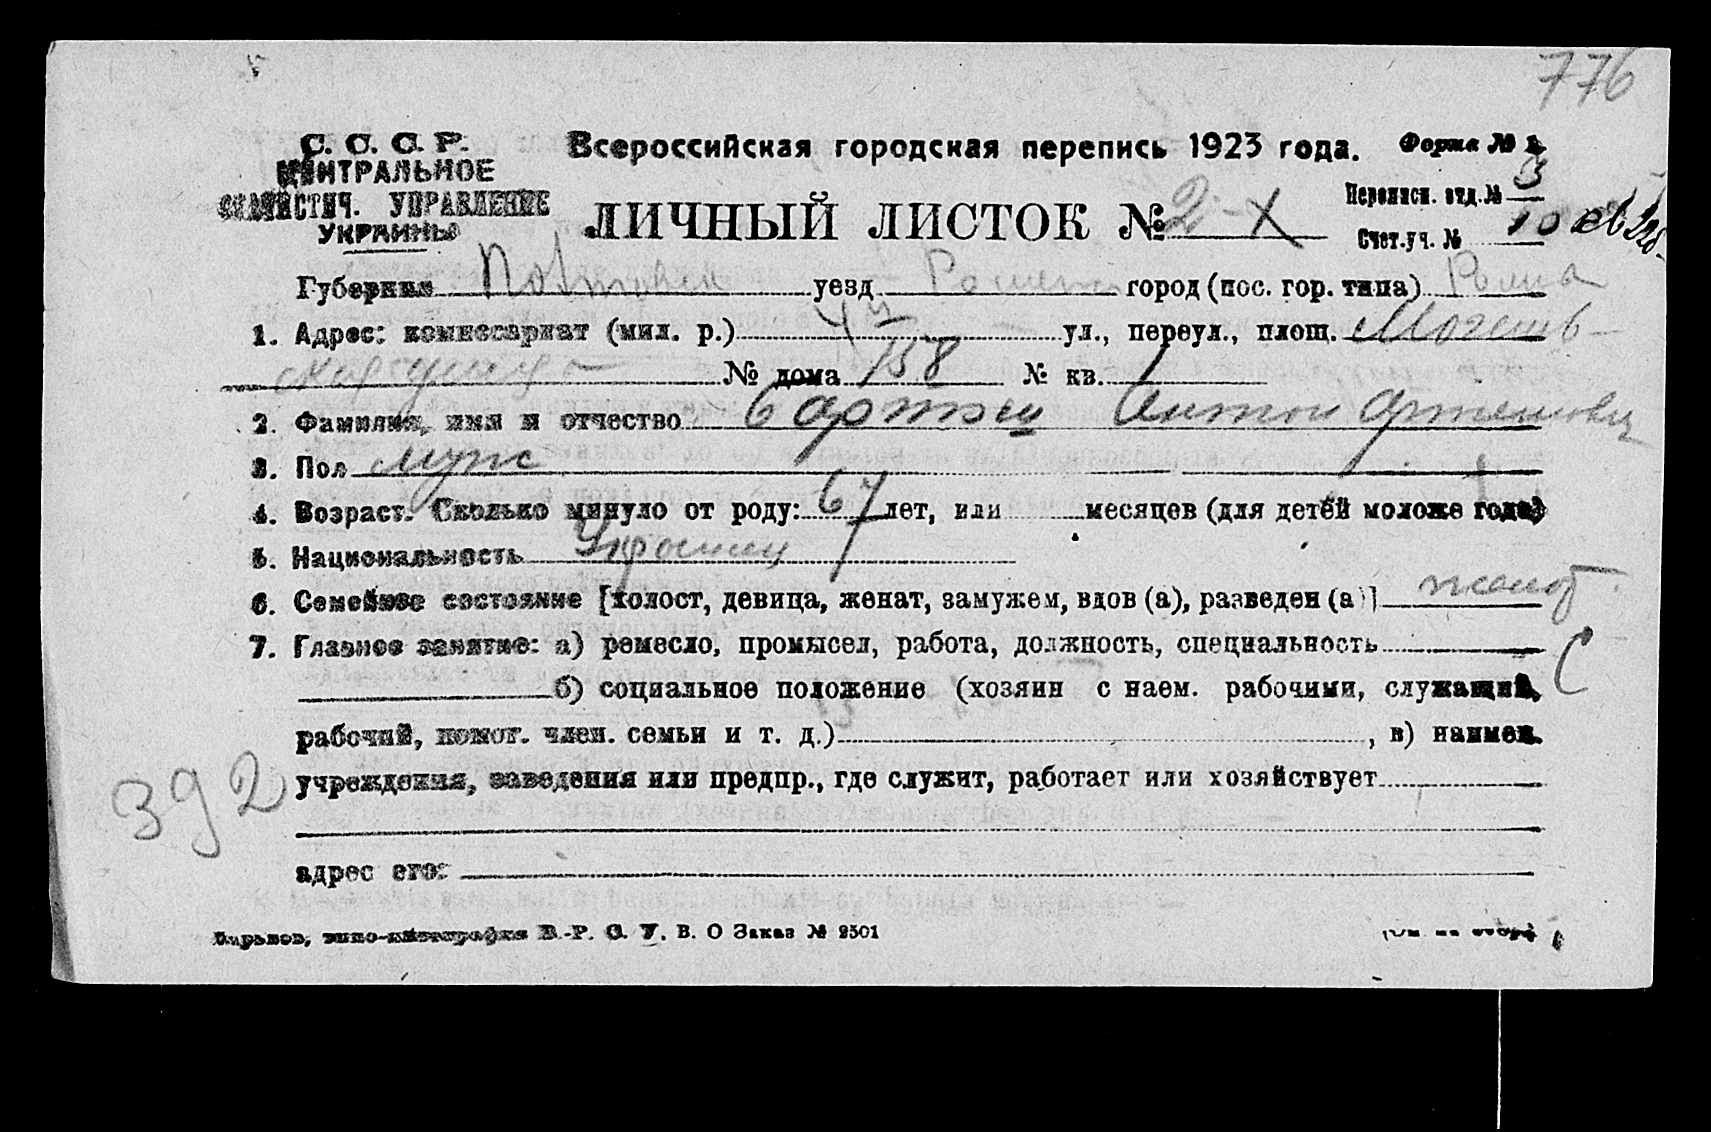 776
С. С. С. Р.
ЦЕНТРАЛЬНОЕ
СТАТИСТИЧ. УПРАВЛЕНИЕ
УКРАИНЫ
Всероссийская городская перепись 1923 года.
Форма № 1.
ЛИЧНЫЙ ЛИСТОК № 2-X
Переписн. отд. № 3
Счет. уч. № 10
Губерния Полтавск уезд Роменск город (пос. гор. типа) Ромна
1. Адрес: комиссариат (мил. р.) 4й ул., переул., площ.
№ дома 158 № кв. 1
2. Фамилия, имя и отчество Антон Артемович
3. Пол муж
4. Возраст. Сколько минуло от роду: 67 лет, или месяцев (для детей моложе года)
5. Национальность Украинец
6. Семейное состояние [холост, девица, женат, замужем, вдов (а), разведен (а)] женат
7. Главное занятие: а) ремесло, промысел, работа, должность, специальность
С
б) социальное положение (хозяин с наем. рабочими, служащий,
рабочий, помог. член. семьи и т. д.) , в) наимен.
392
учреждения, заведения или предпр., где служит, работает или хозяйствует
адрес его:
Харьков, типо-литография В.-Р. С. У. В. О Заказ № 2501